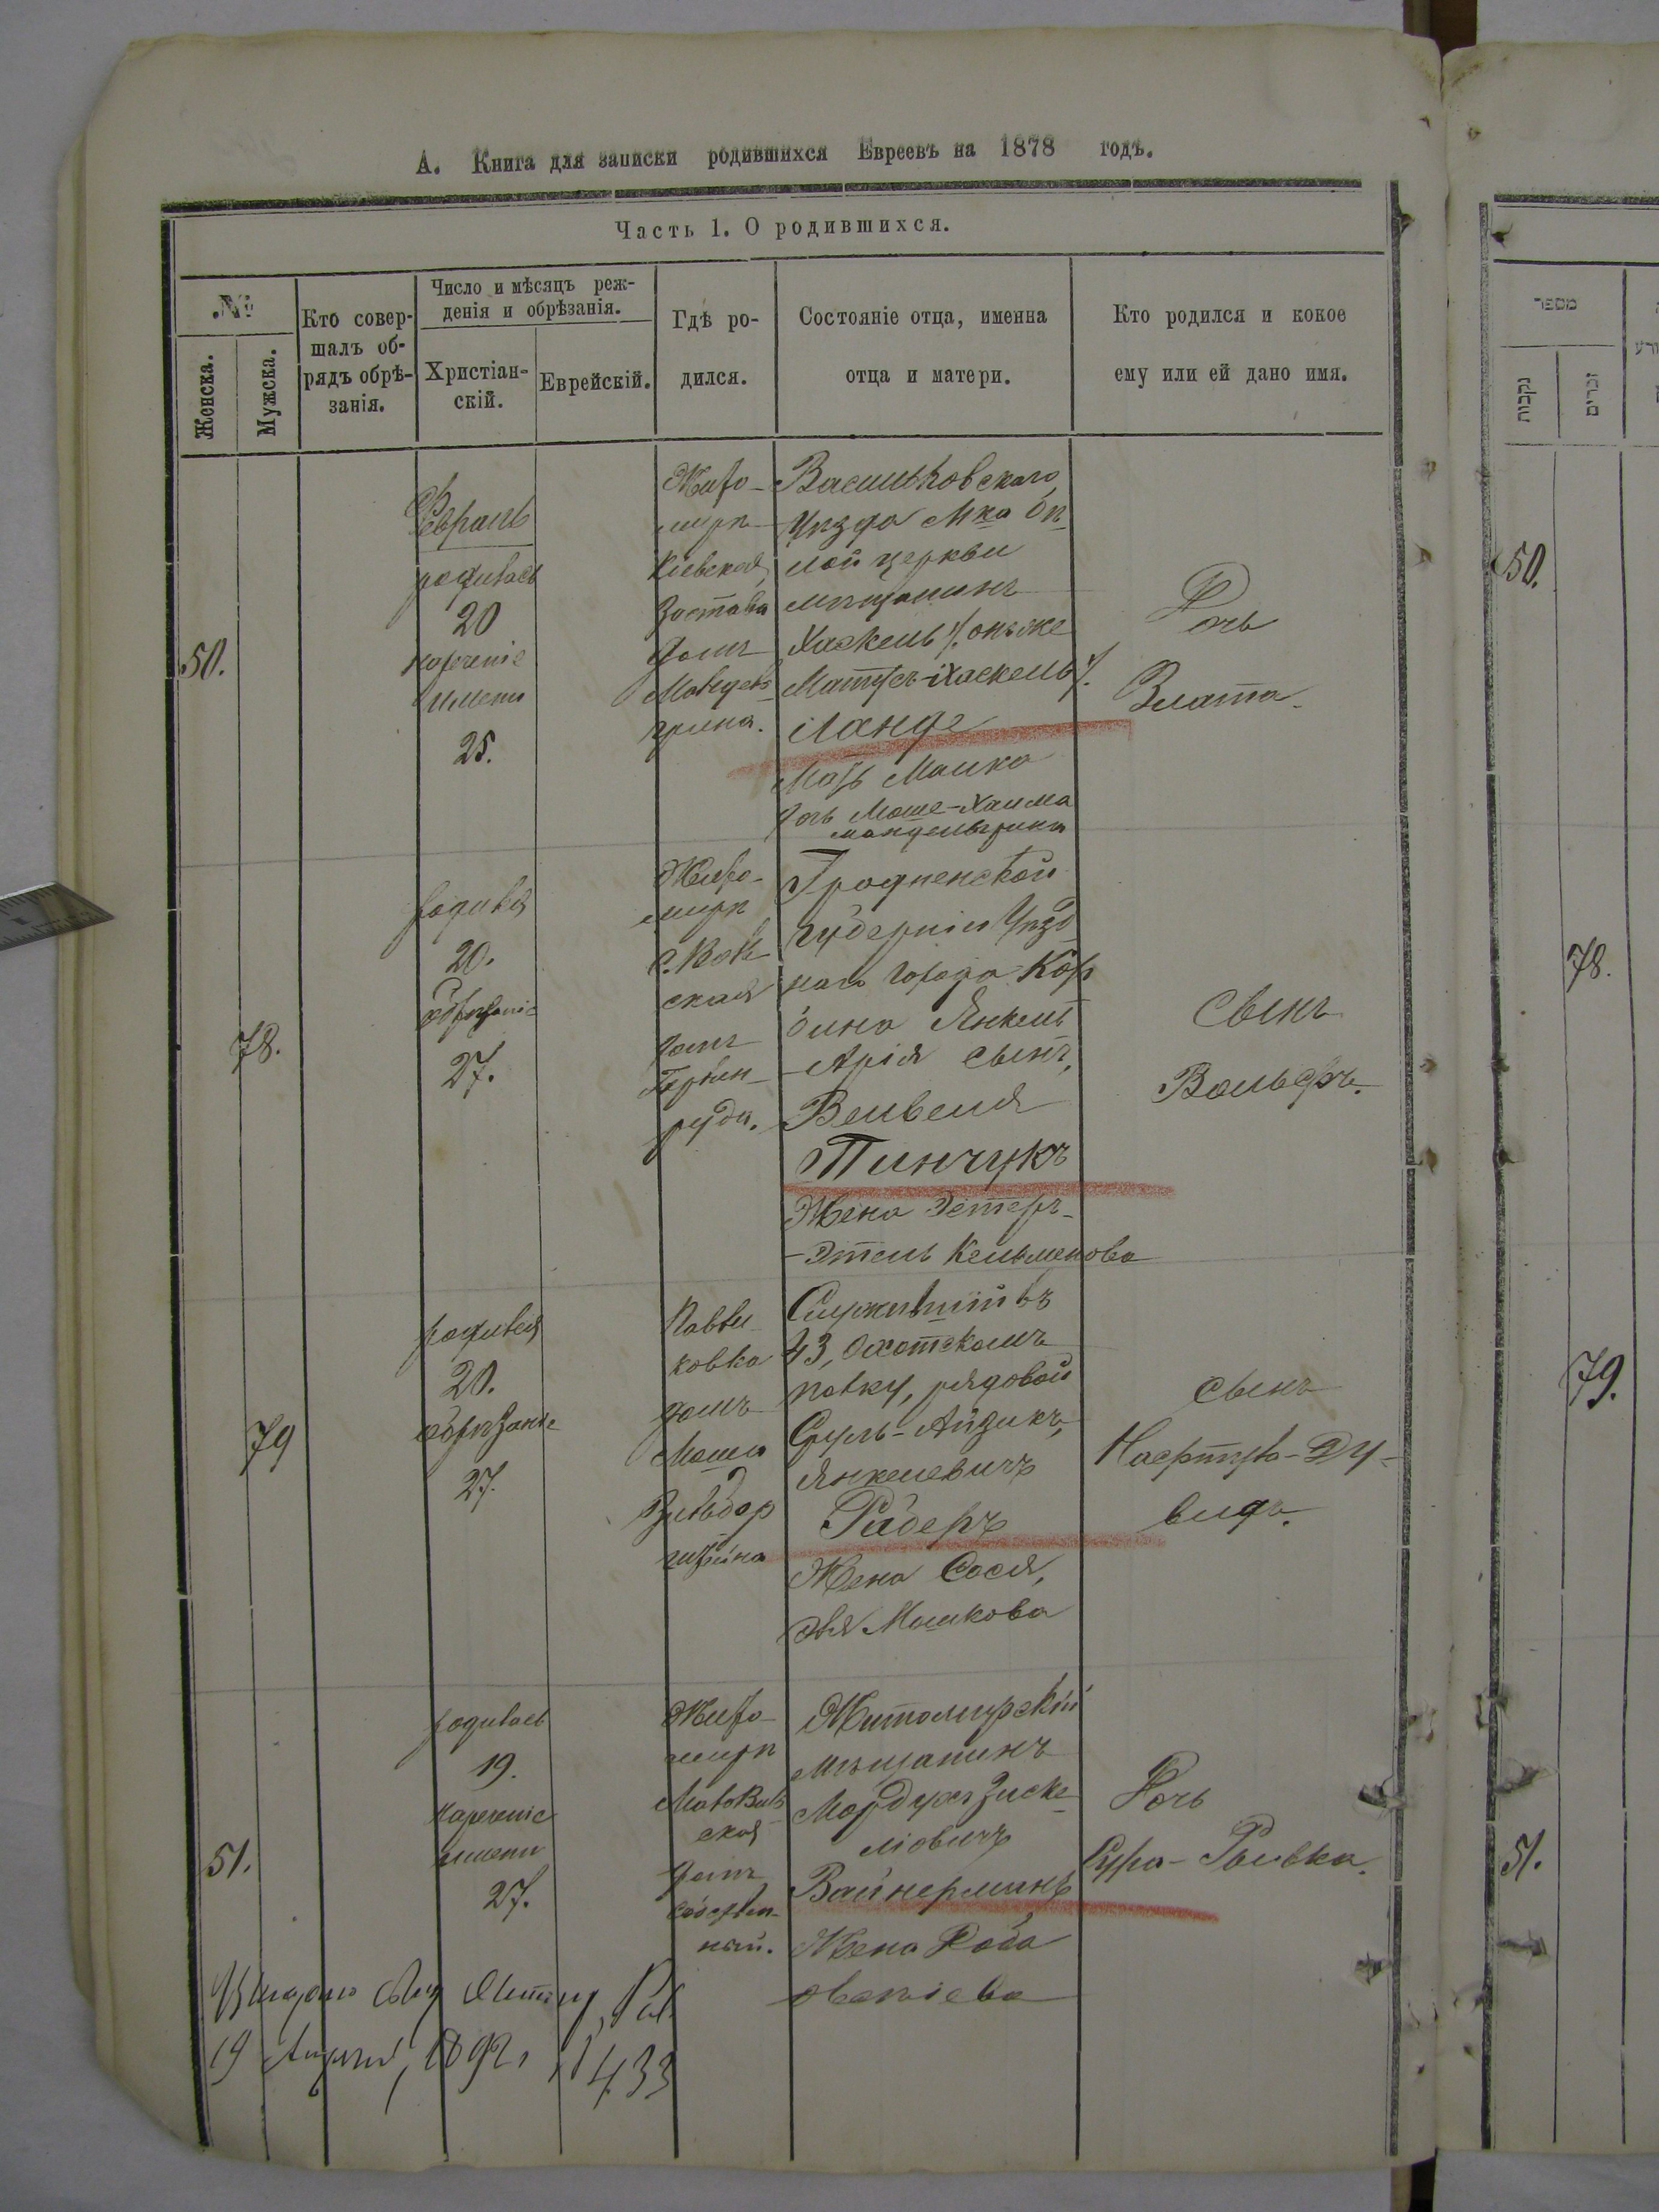 А. Книга для записки родившихся Евреевъ на 1878 годъ.
Часть 1. О родившихся.
№
Женска.
Мужска.
Кто совер-
шалъ об-
рядъ обрѣ-
занія.
Число и мѣсяцъ реж-
денія и обрѣзанія.
Христіан-
скій.
Еврейскій.
Гдѣ ро-
дился.
Состояніе отца, именна
отца и матери.
Кто родился и кокое
ему или ей дано имя.
50.
Февраль
родилась
20
нареченіе
имени
25.
Жито-
мирѣ
Кіевская
Застава
домъ
грина.
Васильковскаго
Уѣзда М-ка Бѣ-
лой церкви
мѣщанинъ
Хаскель /. онъ же
Матусъ-Хаскель /.
Ланде
Мать Малка
дочь Моше-Хаима
мандельгрина
Дочь
Злата.
78.
родился
20.
обрѣзаніе
27.
Жито-
мирѣ
ская
домъ
Гродненской
губерніи Уѣзд
наго города Коб
рина Янкель
-Арія сынъ,
Вельвеля
Пинчукъ
Жена Эстеръ-
-Этель Кельменова
Сынъ
Вольфъ.
79
родился
20.
обрѣзаніе
27.
Павли-
ковка
домъ
Служившій въ
43, Охотскомъ
полку, рядовой
Сруль-Айзикъ,
Янкелевичъ
Радеръ
Жена Сося,
Эвя Мошкова
сынъ
Нафтула-Ду-
видъ.
51.
родилась
19.
нареченіе
имени
27.
Жито-
мирѣ
ская
домъ
собствен-
ный.
Житомирскій
мѣщанинъ
Мордухъ Зиске-
ліовичъ
Вайнерманъ
Жена Хова
Дочь
Сура-Ривка.
19 1892 г 433
מספר
נקבות
זכרים
50.
78.
79.
51.